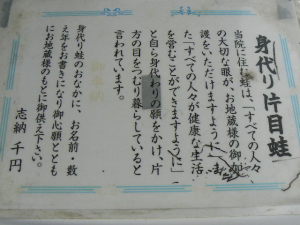 身代り片目蛙
当院に住む蛙は、「すべての人々
の大切な眼が、お地蔵様の御加
護をいただけますように」「ま
た「すべての人々が健康な生活
を営むことができますように」
と自ら身代わりの願をかけ、片
方の目をつむり暮らしていると
言われています。
身代り蛙のおなかに、お名前・数
え年をお書きになり御心願ととも
にお地蔵様のもとに御供え下さい。
志納 千円